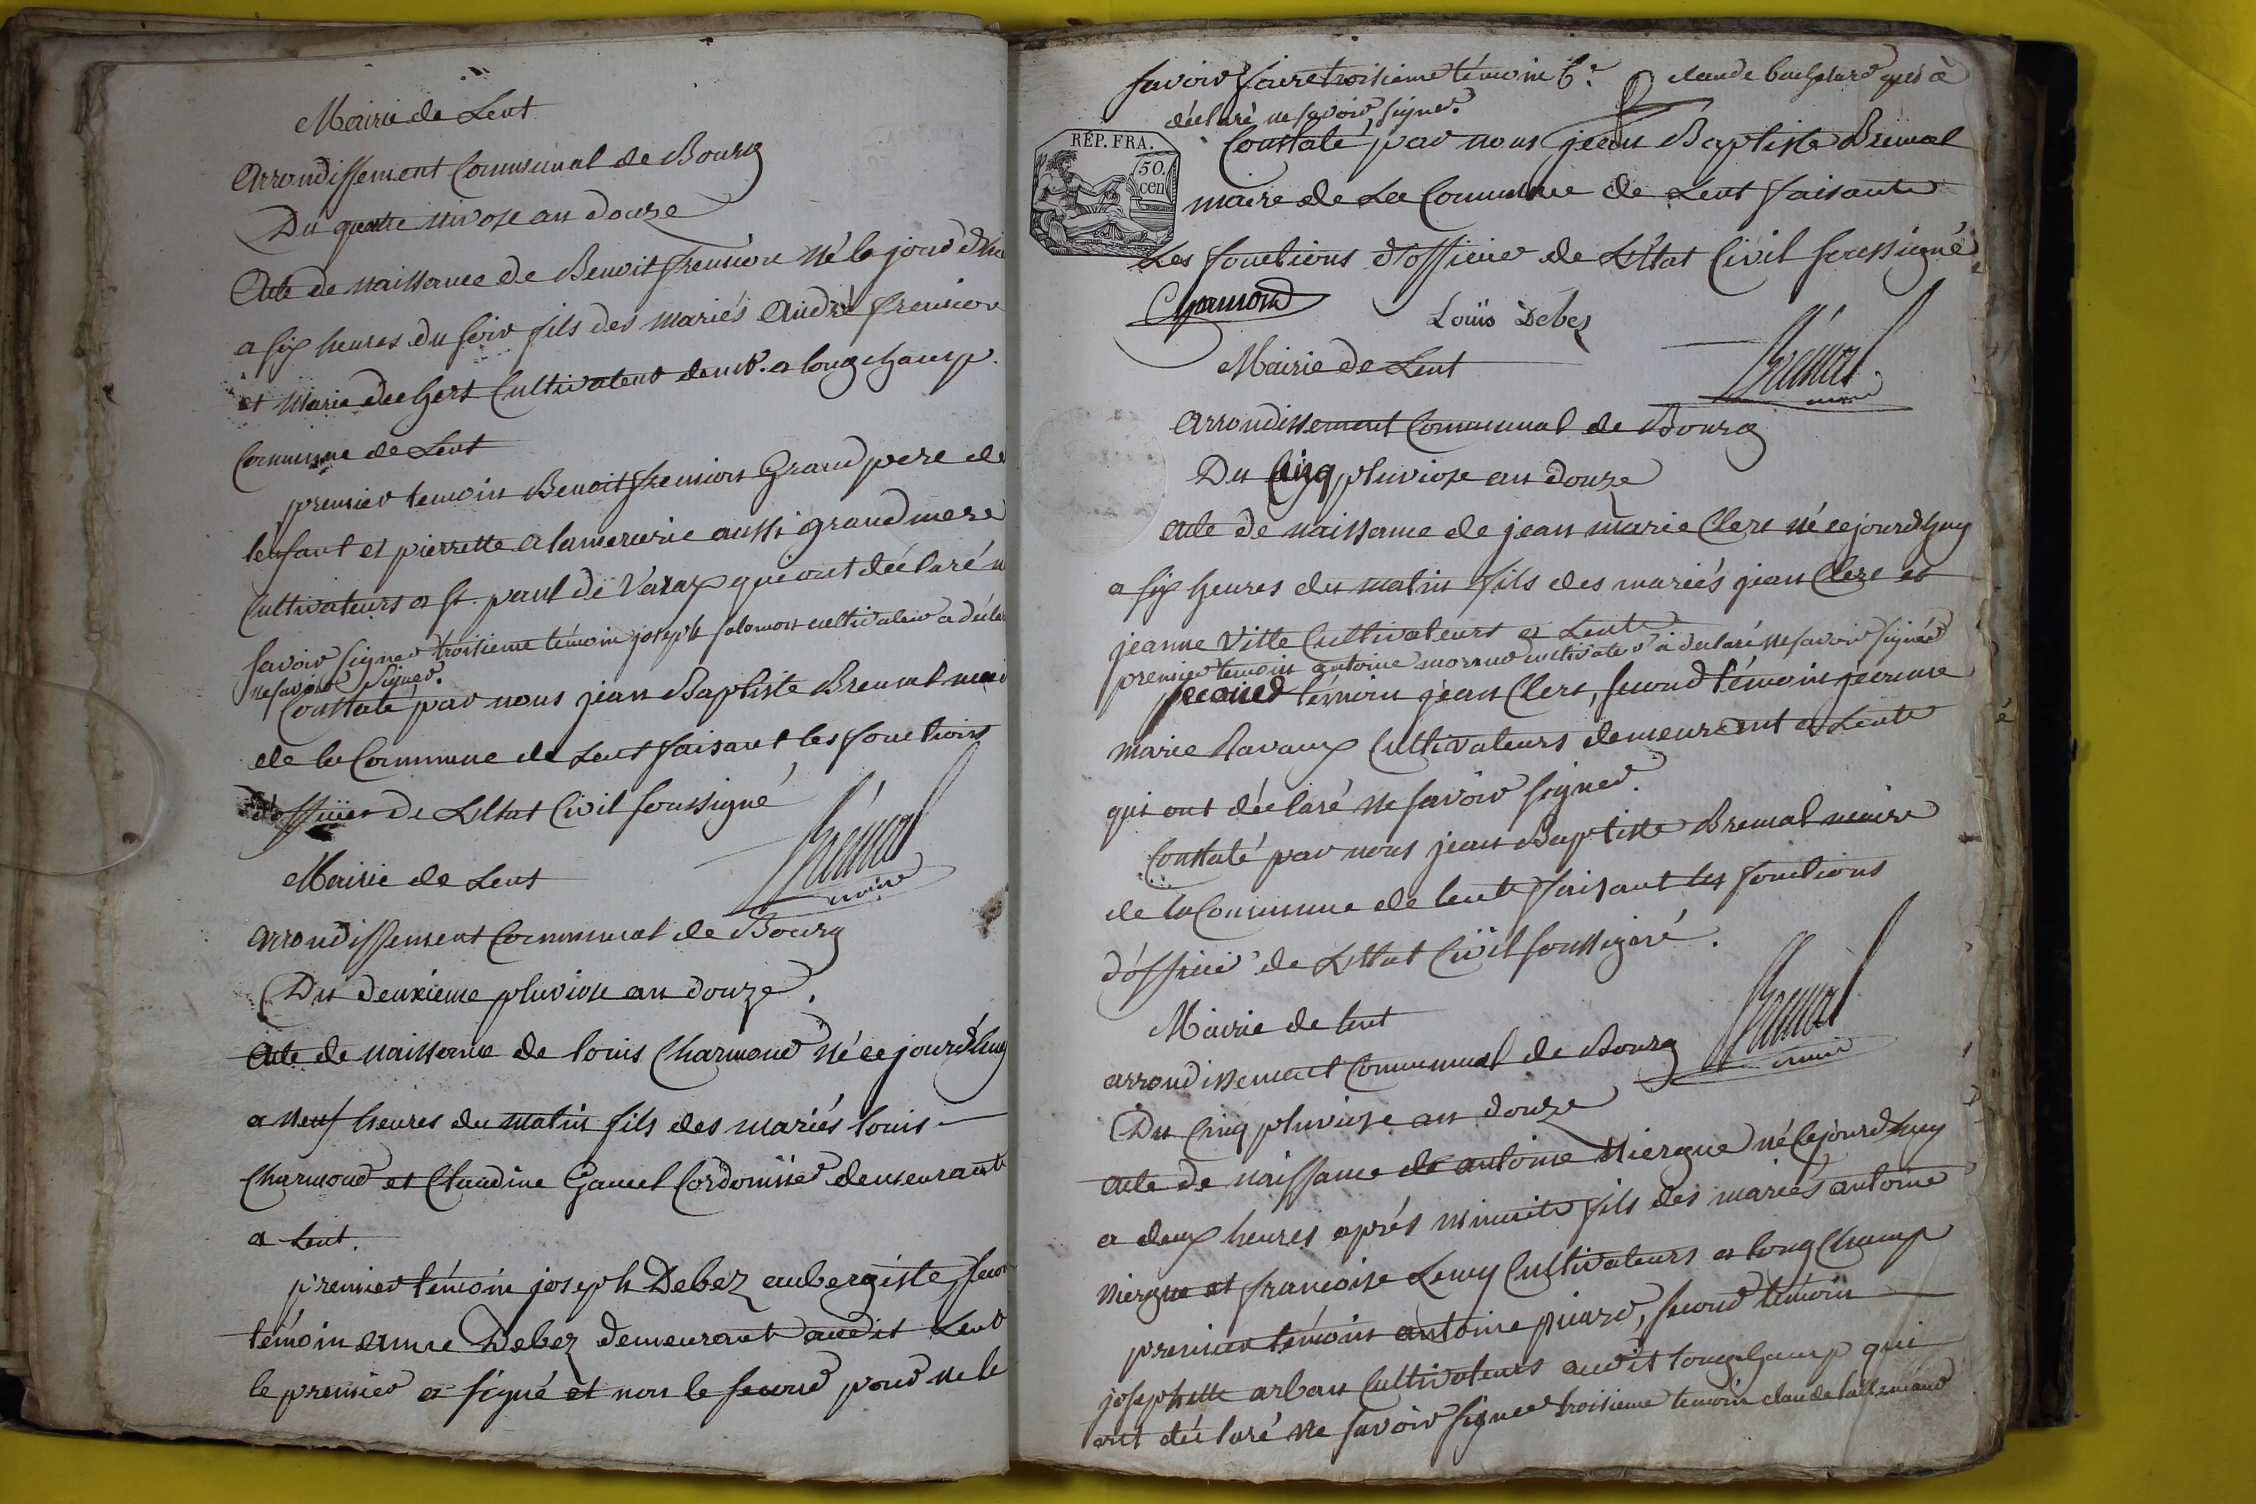 Mairie de Lent
arrondissement Communal de Bourg
Du quatre nivose an douze
Acte de naissance de Benoit frenion Né le jour d'hie
a six heures du soir fils des mariés André frenion
et Marie dechert Cultivateur demt. a longchamp
Commune de Lent
premier temoin Benoit frenion Grand pere de
lenfant et pierrette alamercerie aussi grand mere
Cultivateurs a st. paul de Varax qui ont déclaré n
savoir signer troisieme témoin joseph solomon cultivateur a décla
ne savoir signer.
Constaté par nous jean Baptiste Bremal mai
de la Commune de Lent faisant les fonctions
d'officier de L'Etat Civil soussigné
Brémal
maire
Mairie de Lent
arrondissement Communal de Bourg
Du deuxieme pluviose an douze.
Acte de naissance de louis Charmond né ce jourd'huy
a neuf heures du matin fils des mariés louis
Charmond et Claudine Gauel Cordonnier demeurant
a Lent.
premier témoin joseph Debez aubergiste, secon
témoin anne Debez demeurant audit Lent
le premier a signé et non le second pour ne le
savoir faire troisieme témoin claude qui à
déclaré ne savoir signer.
RÉP. FRA.
50. cen
Constaté par nous jean Baptiste Bremal
maire de La Commune de Lent faisant
Les fonctions d'officier de L'Etat Civil soussigné
Charmond
Louïs Debez
Brémal
maire
Mairie de Lent
arrondissement Communal de Bourg
Du Cinq pluviose an douze
acte de naissance de jean marie Clerc né ce jourd'huy
a six heures du matin fils des mariés jean Clerc et
jeanne Vitte Cultivateurs a Lent
premier temoin antoine cultivateur à declaré ne savoir signer
second témoin jean Clerc, second témoin jeanne
marie Ravaux Cultivateurs demeurant a Lent
qui ont déclaré ne savoir signer.
Constaté par nous jean Baptiste Bremal maire
de la Commune de lent faisant les fonctions
d'officier de L'Etat Civil soussigné.
Brémal
maire
Mairie de lent
arrondissement Communal de Bourg
Du Cinq pluviose an douze
acte de naissance de antoine Niergue né Cejourdhuy
a deux heures aprés minuite fils des mariés antoine
Niergue et francoise Leuy Cultivateurs a longChamp
premier témoin antoine picard, second témoin
josephette arban Cultivateurs audit longchamp qui
ont déclaré ne savoir signer troisieme temoin claude lallemand